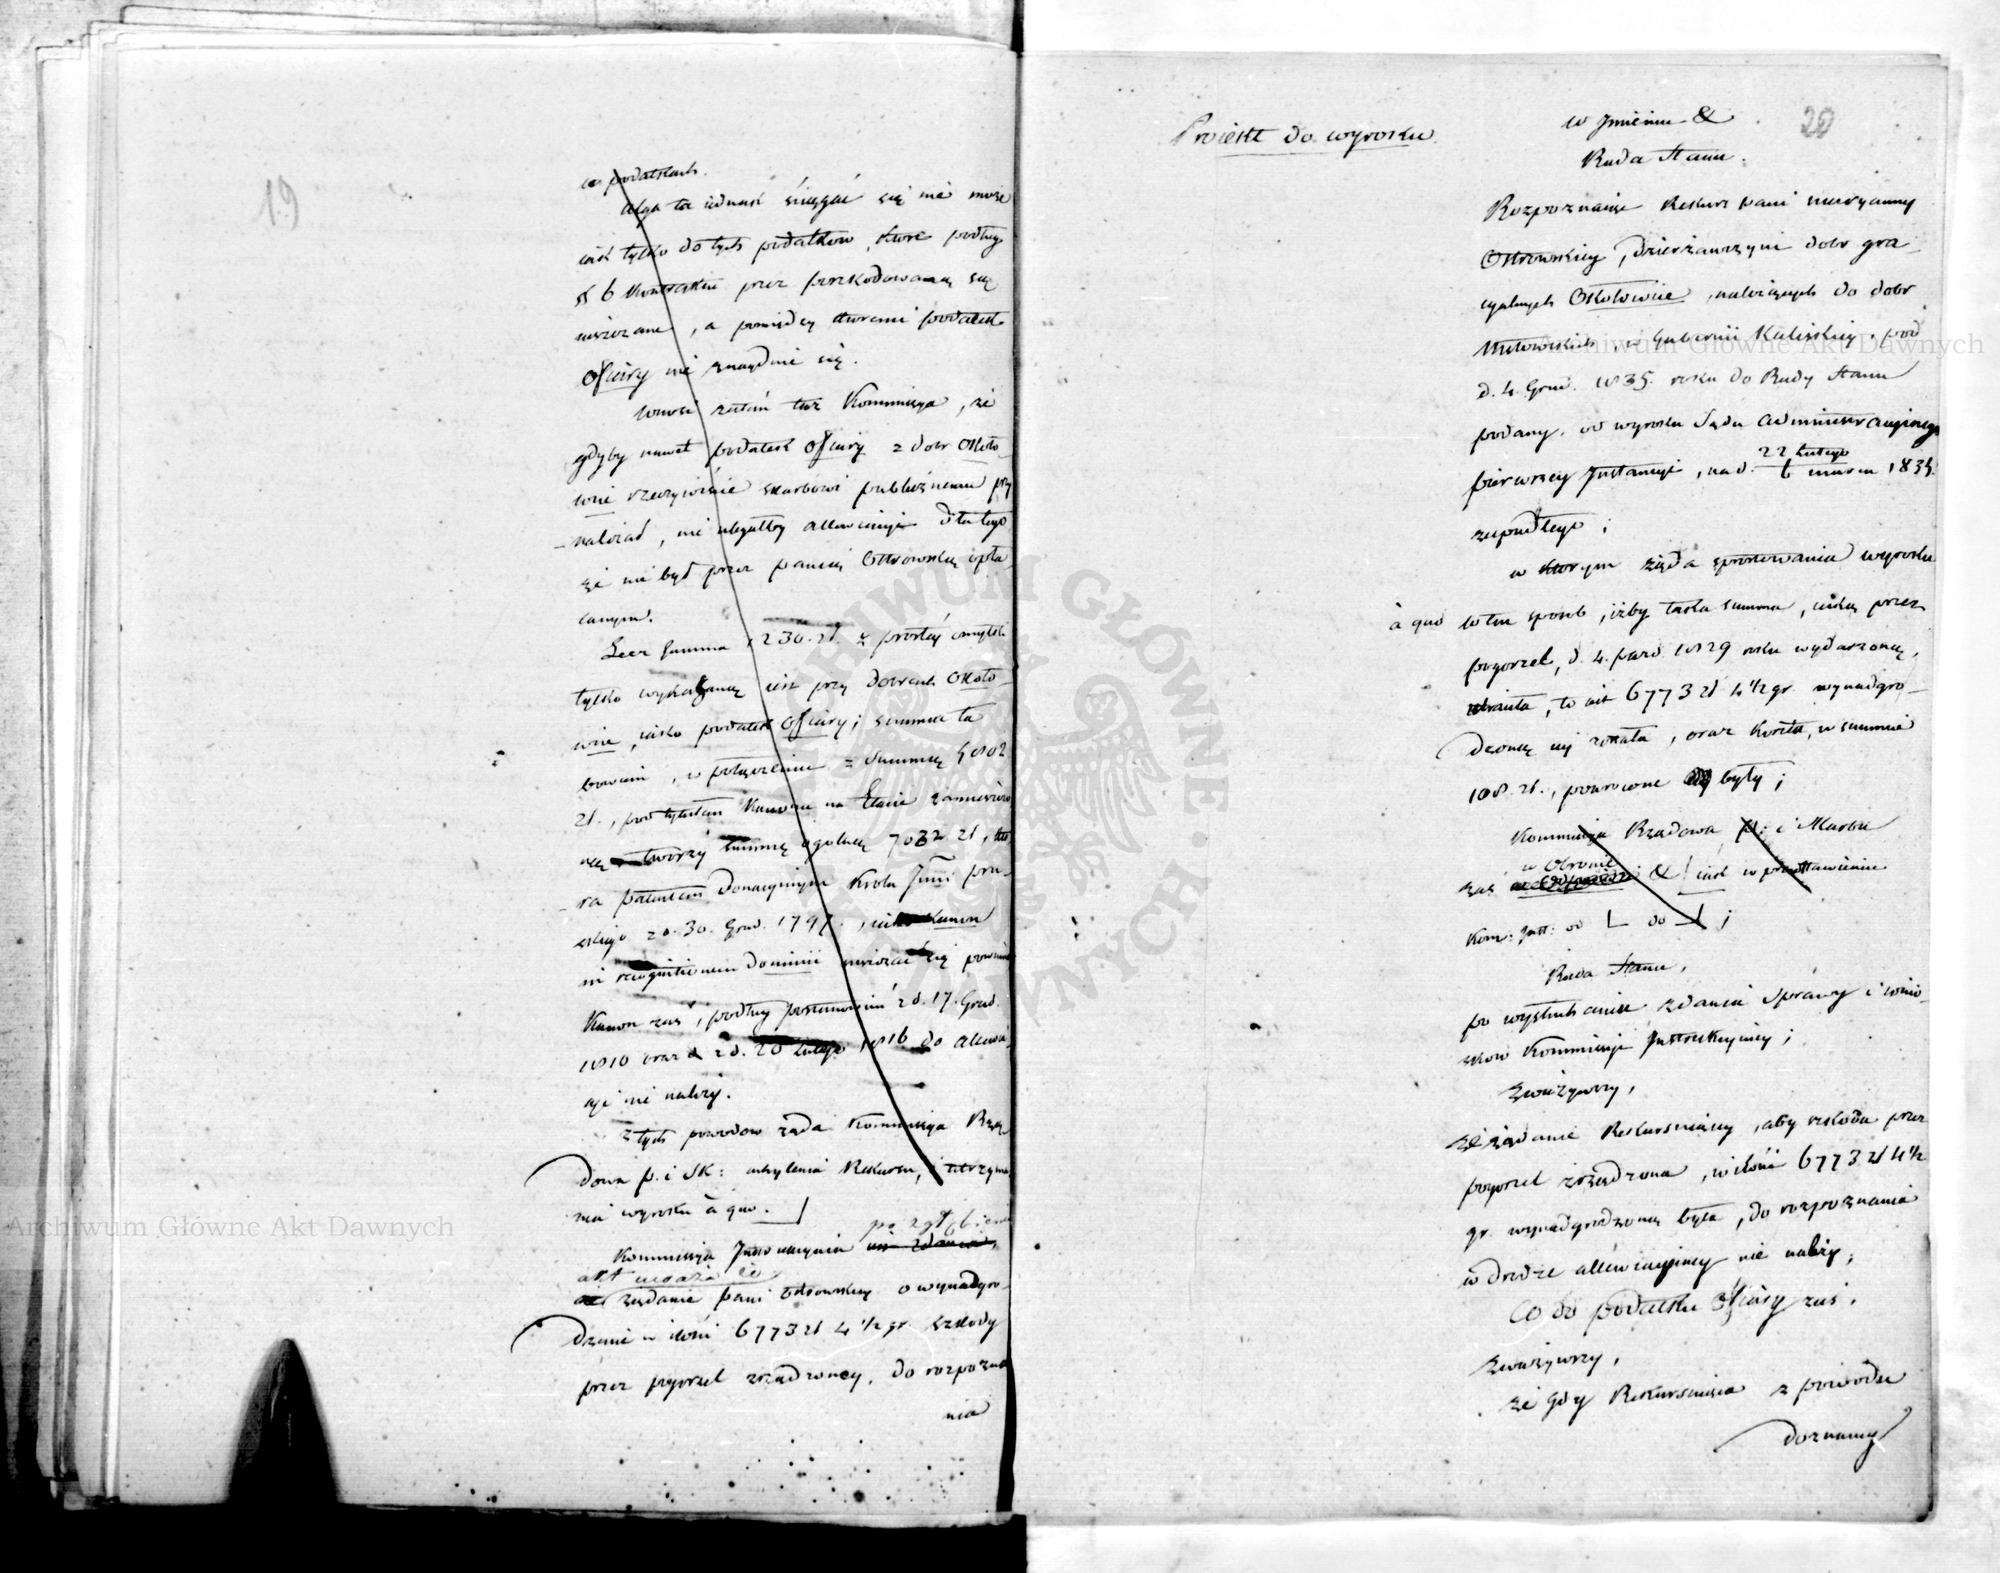 19
w podatkach.
Ulga ta iednak ściągać się nie może
iak tylko do tych podatków, które podług
§ 6 Kontraktu przez poszkodowaną są
uiszczane, a pomiędzy któremi podatek
Ofiary nie znayduie się.
Wnosi zatem taż Kommissya, że
gdyby nawet podatek Ofiary z dobr Około-
wic rzeczywiście skarbowi publicznemu przy
należał, nie uległby allewiacyi dla tego
że nie był przez panią Ostrowską opła
canym.
Lecz Summa 1230 zł. z prostéj omyłki
tylko wykazaną iest przy dobrach Około-
wice, iako podatek Ofiary; summa ta
bowiem, w połączeniu z Summą 5802
zł., pod tytułem Kanonu na Etacie zamieszczo
ną tworzy summę ogólną 7032 zł, któ
ra patentem Donacyinym Króla Jmci pru-
skiego z d. 30. Grud. 1797., iako Kanon
in recognitionem dominii uiszczać się powinna
Kanon zaś, podług postanowień z d. 17. Grud.
1810 oraz z d. 20 Lutego 1816 do allewia-
cyi nie należy.
Z tych powodów żąda Kommissya Rzą
dowa p. i SK: uchylenia Rekursu, i utrzyma
nia wyroku à quo.
po zgłębieniu
Kommissya Instrukcyina
akt uważa że
żądanie pani Ostrowskiéy o wynadgro-
dzenie w ilości 6773 zł 4 1/2 gr. szkody
przez pogorzel zrządzonéy, do rozpozna
nia
Proiekt do wyroku.
20
w Jmieniu &
Rada Stanu.
Rozpoznaiąc Rekurs pani Maryanny
Ostrowskiey, dzierżawczyni dobr gra
cyalnych Okołowice, należących do dobr
w Gubernii Kaliskiéy, pod
d. 4. Grud. 1835. roku do Rady Stanu
podany, od wyroku Sądu Administracyinego
pierwszey Jnstancyi, na d. 22 Lutego
6 marca 1835.
zapadłego;
w którym żąda sprostowania wyroku
à quo w ten sposób, iżby taka summa, iaką przez
pogorzel, d. 4. paźd. 1829 roku wydarzoną,
utraciła, to iest 6773 zł 4 1/2 gr. wynadgro-
dzoną iéj została, oraz koszta, w summie
108. zł., powrócone były;
Kommissya Rządowa p: i Skarbu
w Obronie
zaś & iak w przedstawieniu
Kom: Jnst: od L do ⅃;
Rada Stanu,
po wysłuchaniu zdania sprawy i wnio-
sków Kommissyi Jnstrukcyinéy;
Zważywszy,
że żądanie Rekursuiącéy, aby szkoda przez
pogorzel zrządzona, w ilości 6773 zł 4 1/2
gr. wynadgrodzoną była, do rozpoznania
w drodze allewiacyinéy nie należy;
Co do podatku Ofiary zaś,
Zważywszy,
że gdy Rekursuiąca z powodu
doznanéy
Archiwum Główne Akt Dawnych
Archiwum Główne Akt Dawnych
ARCHIWUM GŁÓWNE